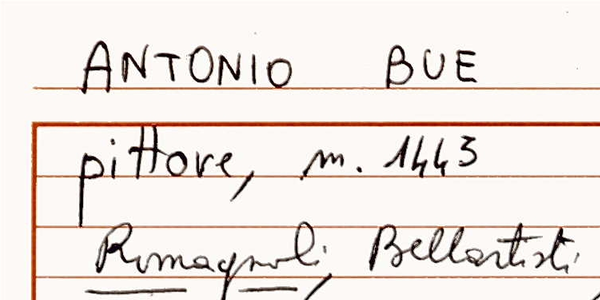 ANTONIO BUE
pittore, m. 1443
Romagnoli, Bellartisti